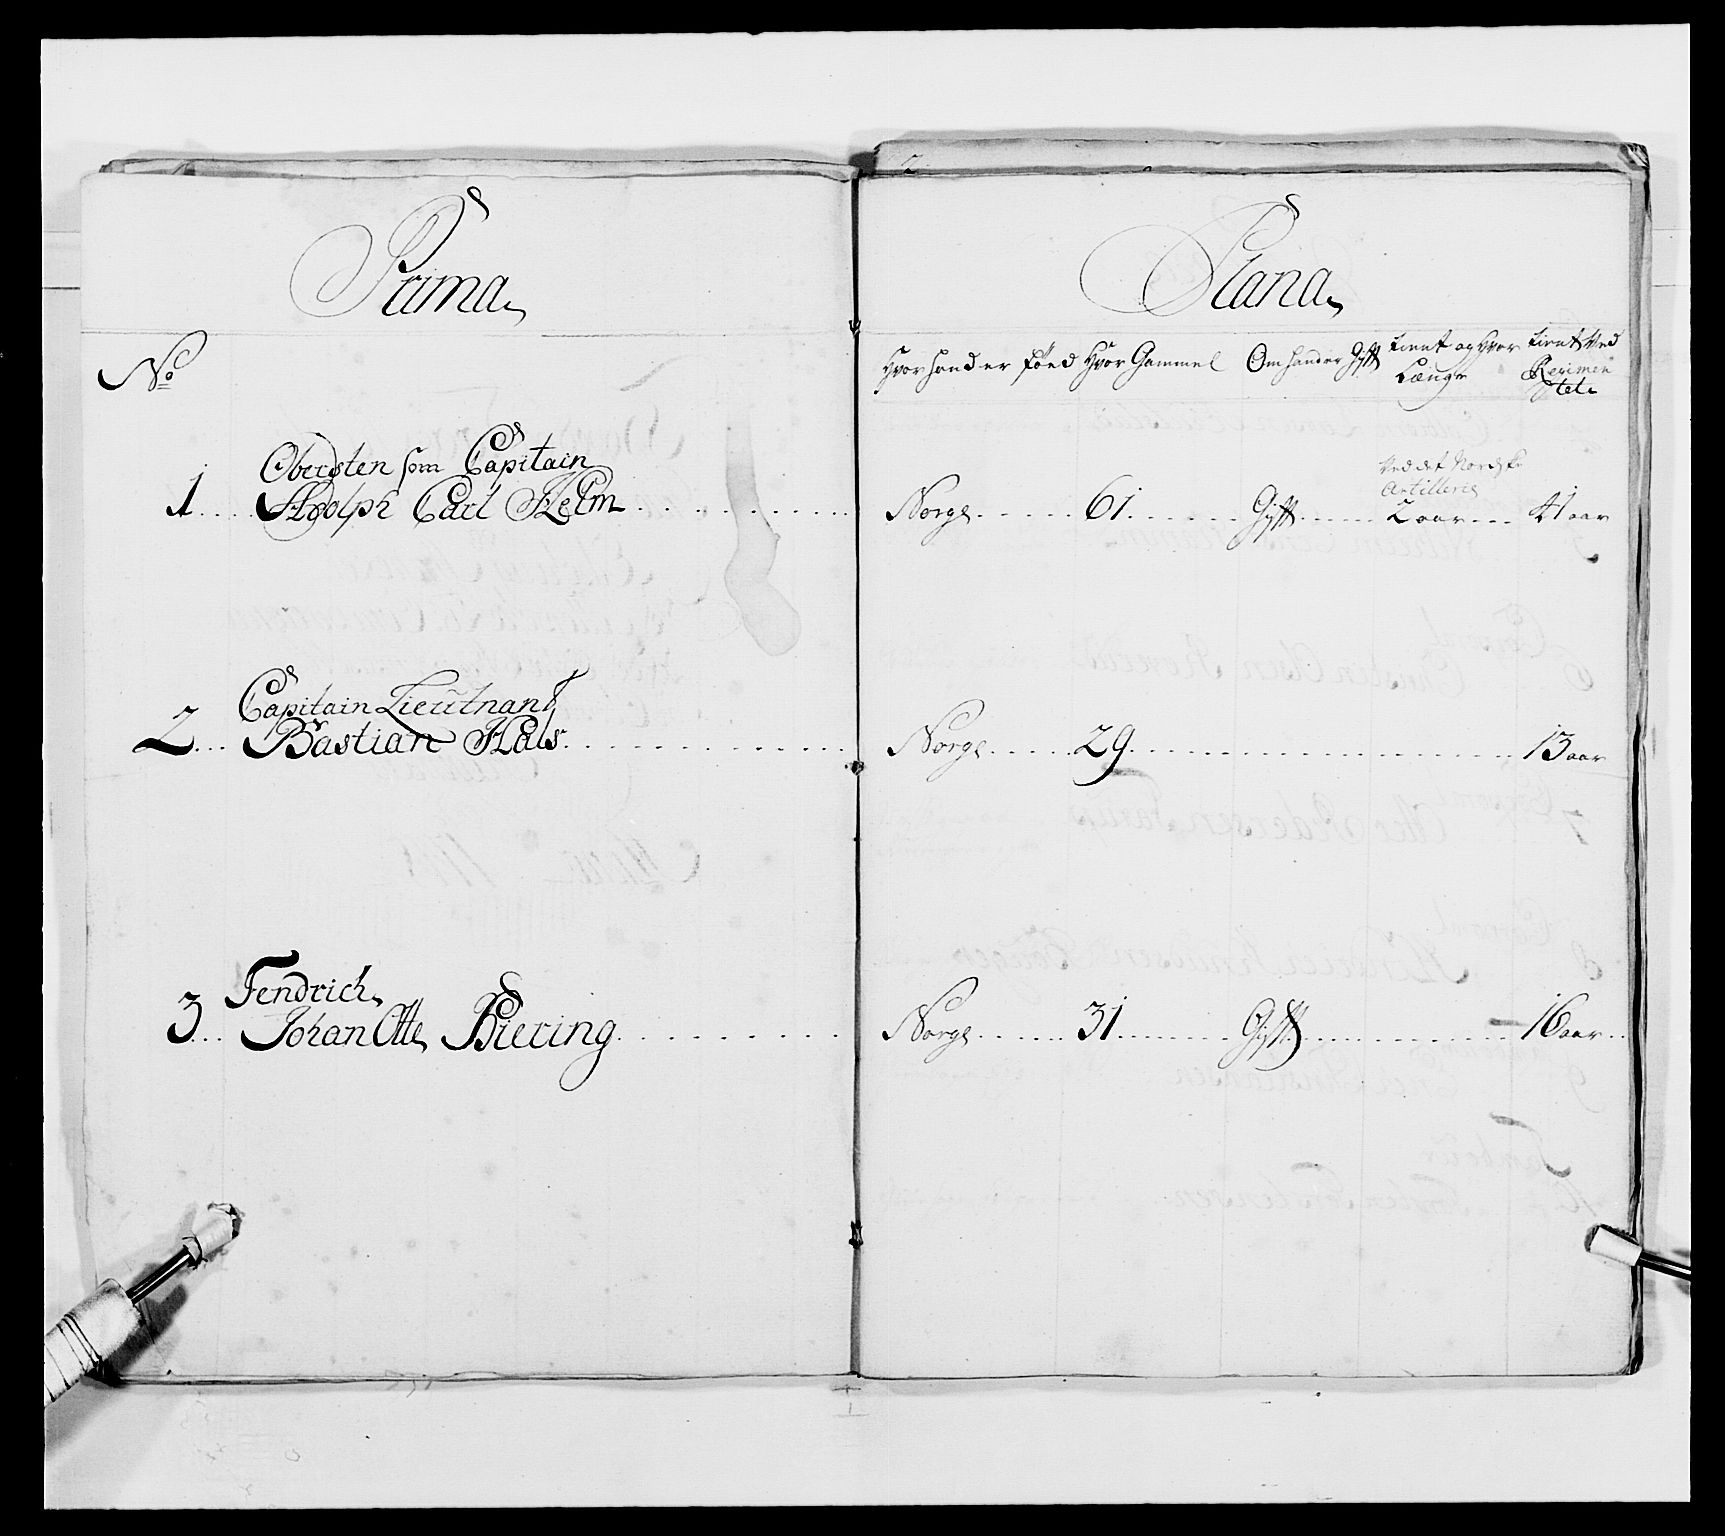 Prima
Plana
No
Hvor hand er föed
Hvor Gammel
Om hand er Gift
tient og hvor Længe
tient ved Regimentete
Obersten som Capitain
1 Adolph Carl Helm
Norge
61
Gift
ved det Nordske Artillerie
2 aar
41 aar
Capitain Lieutnant
2 Bastian Hals
Norge
29
13 aar
Fendrich
3 Johan Otte Biering
Norge
31
Gift
16 aar